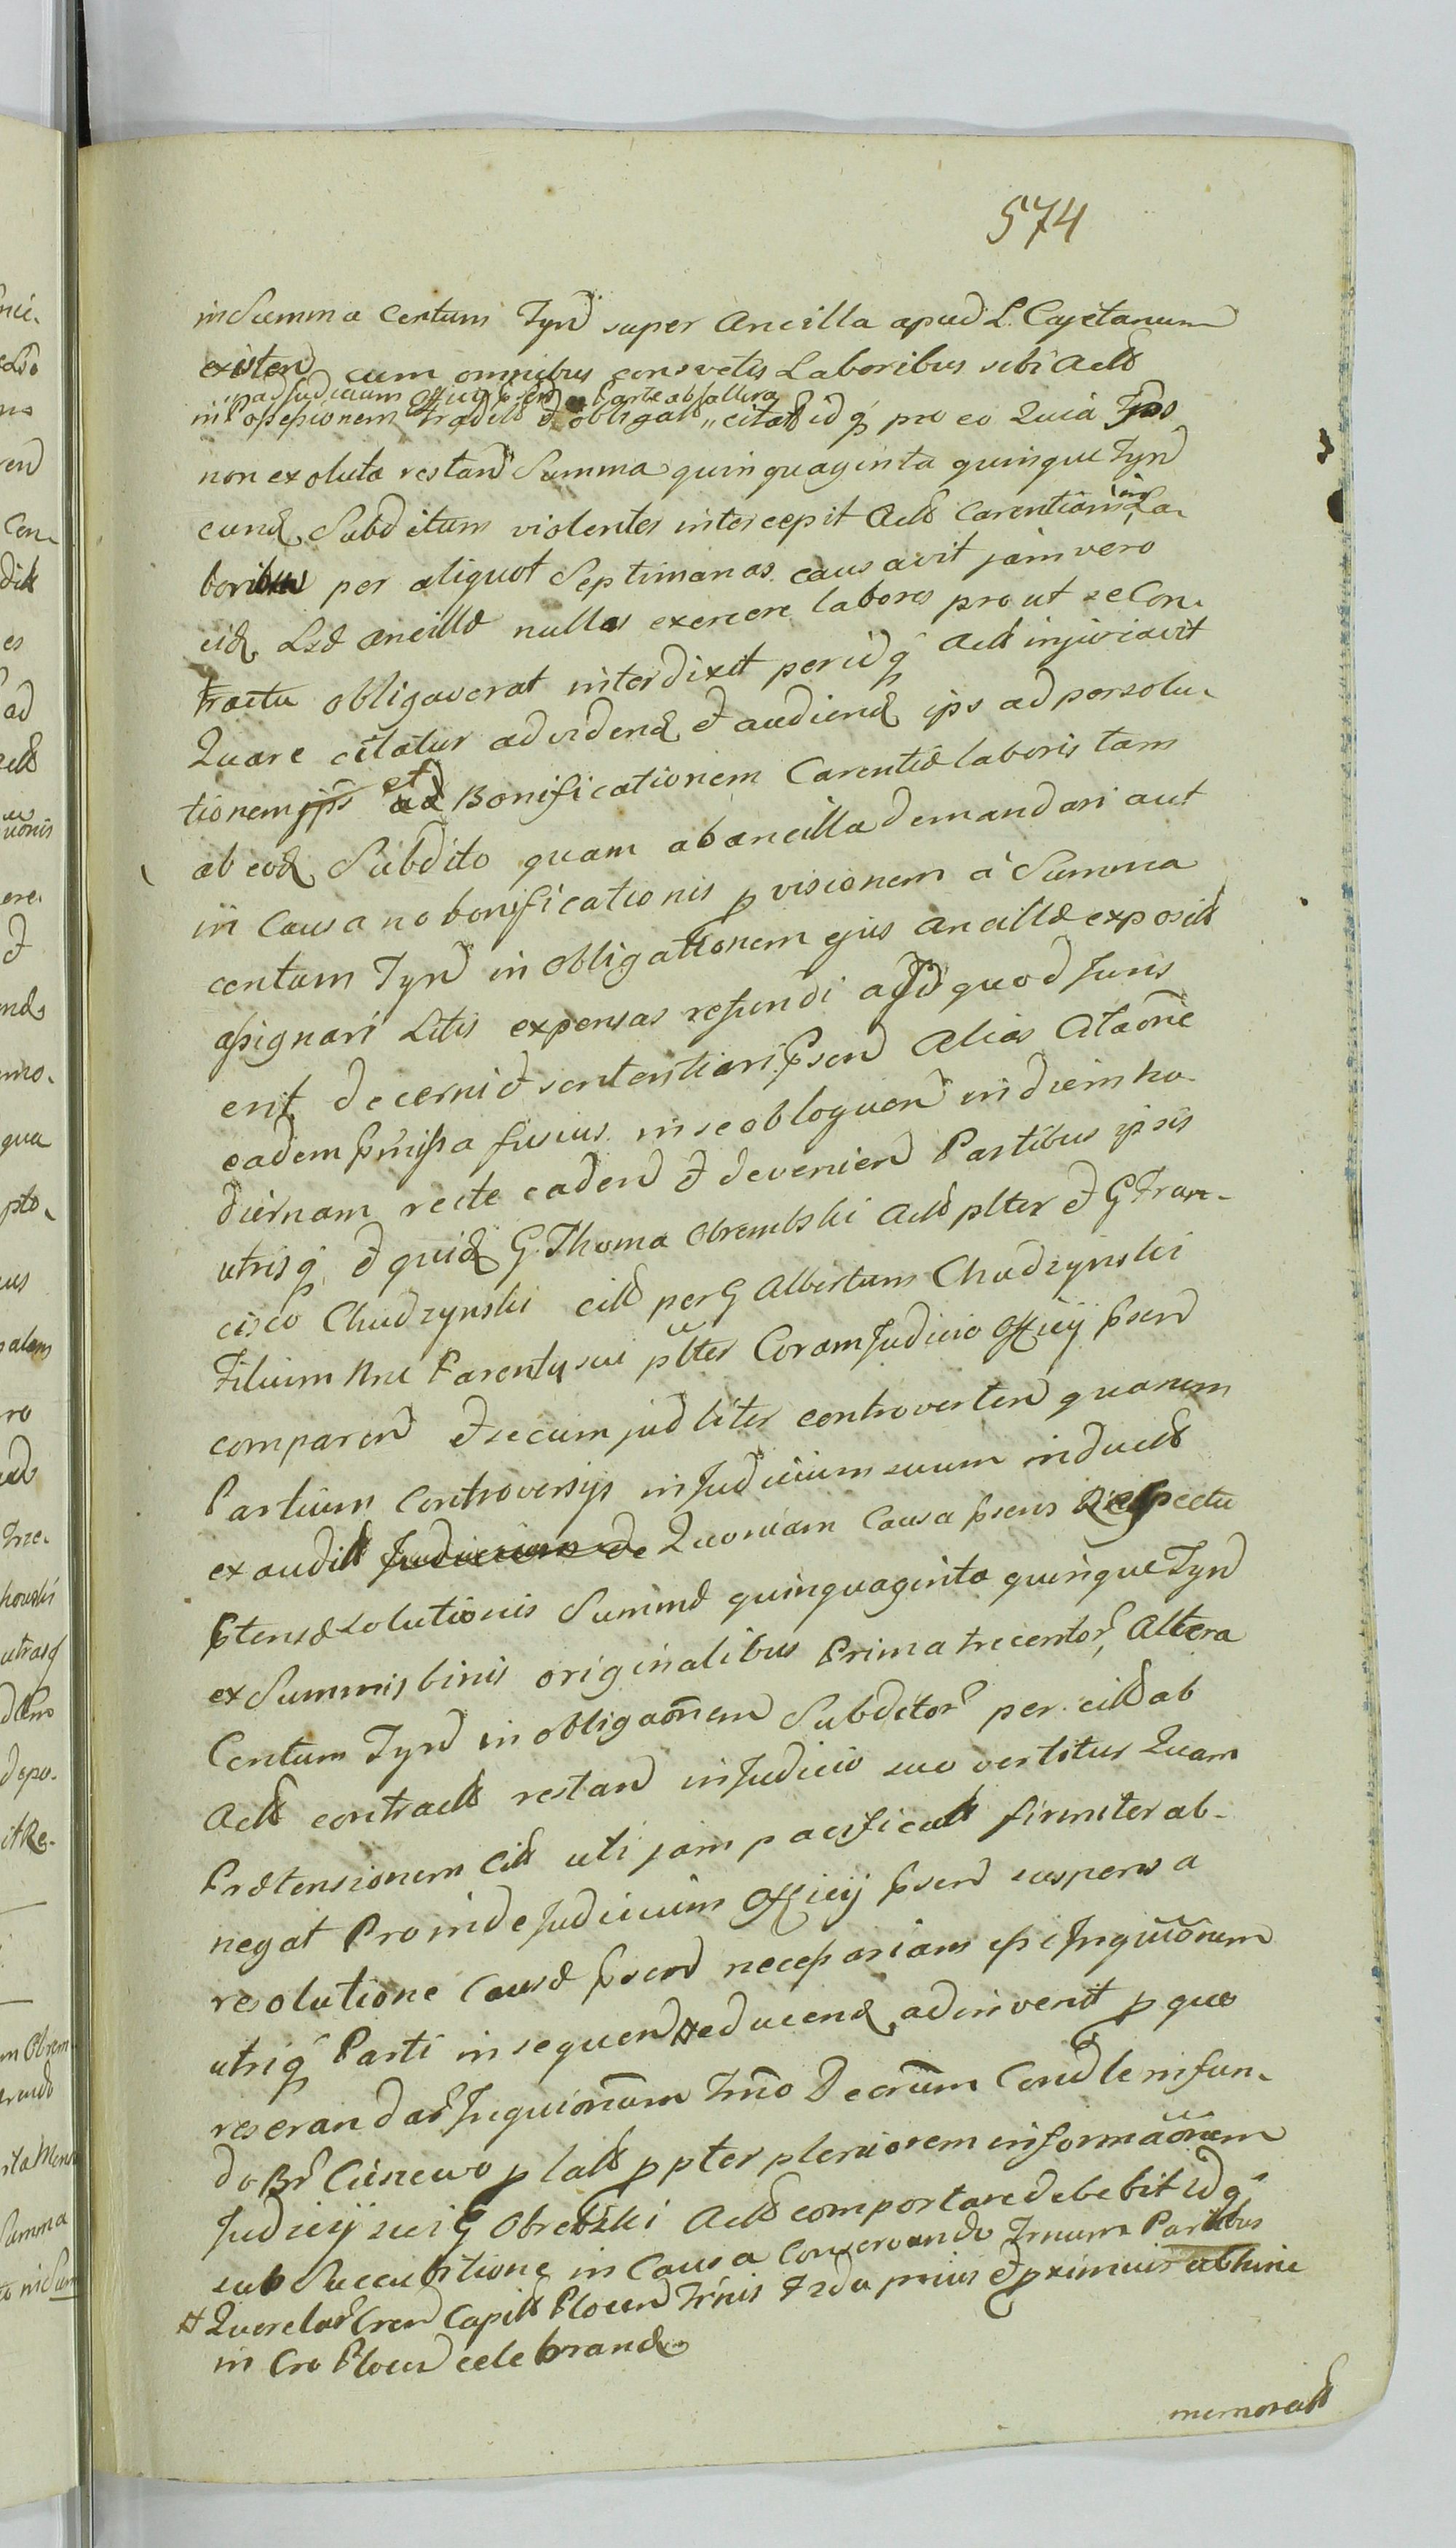 574
in Summa Centum Tynd super Ancilla apud L. Cajetanum
existend cum omnibus consvetis Laboribus sibi Actt
ad Judicium Officij Psend a Parte ab altera
in Possessionem tradit et obligat citat idq pro eo Quia
non exoluta restand Summa quinquaginta quinque Tynd
eund Subditum violenter intercepit Actt Carentiam in La-
boribus per aliquot Septimanas causavit jam vero
eid ancillæ nullos exercere labores prout se Con-
tractu obligaverat interdixit per idq Actt injuriavit
Quare citatur ad vidend et audiend ips ad persolu-
tionem et Bonificationem Carentiæ laboris tam
ab eod Subdito quam ab ancilla demandari aut
in Causa no bonificationis pvisionem à Summa
centum Tynd in obligationem ejus ancillæ exposit
assignari Litis expensas refundi aliud quod Juris
erit decerni et sententiari Psend Alias Citaone
eadem Pmissa fusius in se obloquen in diem ho-
diernam recte cadend et devenien Partibus ipsis
utrisq et quid G. Thoma Obrembski Actt plter et G Fran-
cisco Chudzynski citt per G Albertum Chudzynski
Filium Nne Parentis sui plter Coram Judicio Officij Psend
comparend et secum judliter controverten quarum
Partium Controversijs in Judicium suum induct
exaudit Judicium de Quoniam Causa Psens Respectu
Ptensæ Solutionis Summæ quinquaginta quinque Tynd
ex Summis binis originalibus Prima trecentor, Altera
Centum Tynd in obligaonem Subditor per citt ab
Actt contractt restand in Judicio suo vertitur Quam
Prætensionem Citt uti jam pacificatt firmiter ab-
negat Proinde Judicium Officij Psend suspensa
resolutione Causæ Psend necessariam esse Inquionem
utriq Parti in sequend # educend adinvenit p quo
reserandar Inquionum Trno Decrum Condle in fun-
do Br Cieszewo p latt ppter pleniorem informaonem
Judicij sui G Obrebski Actt comportare debebit idq
sub Succubitione in Causa Conservando Trnum Partibus
# Querelar Cren Capitt Plocen Trnis Feda prius et primuir abhinc
in Cro Plocen celebrand
memoratt